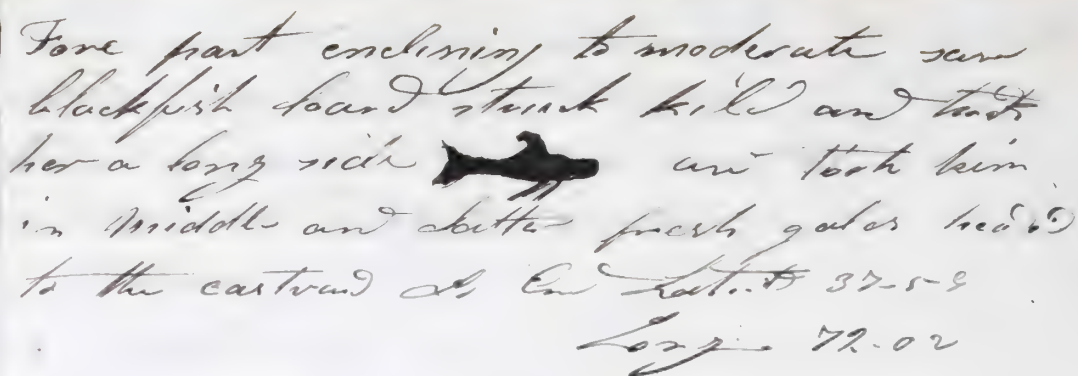 Fore part enclining to moderate saw
blackfish loard struck kild and took
her a long side and took him
in middle and latter fresh gales head
to the eastward So End Latitt 37-59
Longi 72-02